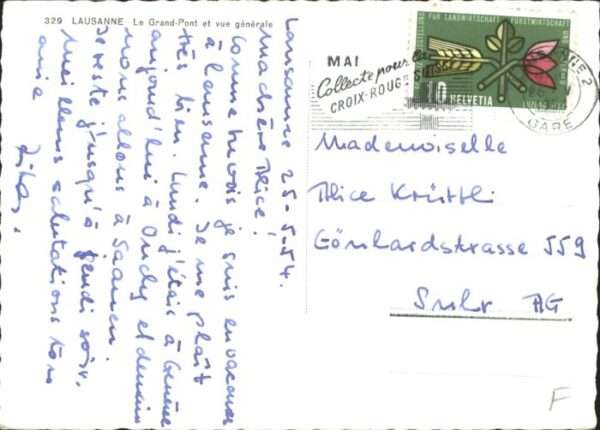 329 LAUSANNE Le Grand-Pont et vue générale
Lausanne 25-5-54.
Ma chère Alice!
Comme tu vois je suis en vacances
à Lausanne. Je me plaît
très bien. Lundi j'étais à Genève
aujourd'hui à Ouchy et demain
nous allons à Saanen.
Je reste jusqu'à jeudi soir.
Meilleures salutations ton
amie
MAI
Collecte pour la
CROIX-ROUGE
FÜR LANDWIRTSCHAFT FORSTWIRTSCHAFT
10 HELVETIA
LUZERN 1954
2
GARE
Mademoiselle
Alice Krüttli
Gönhardstrasse 559
Suhr AG
F